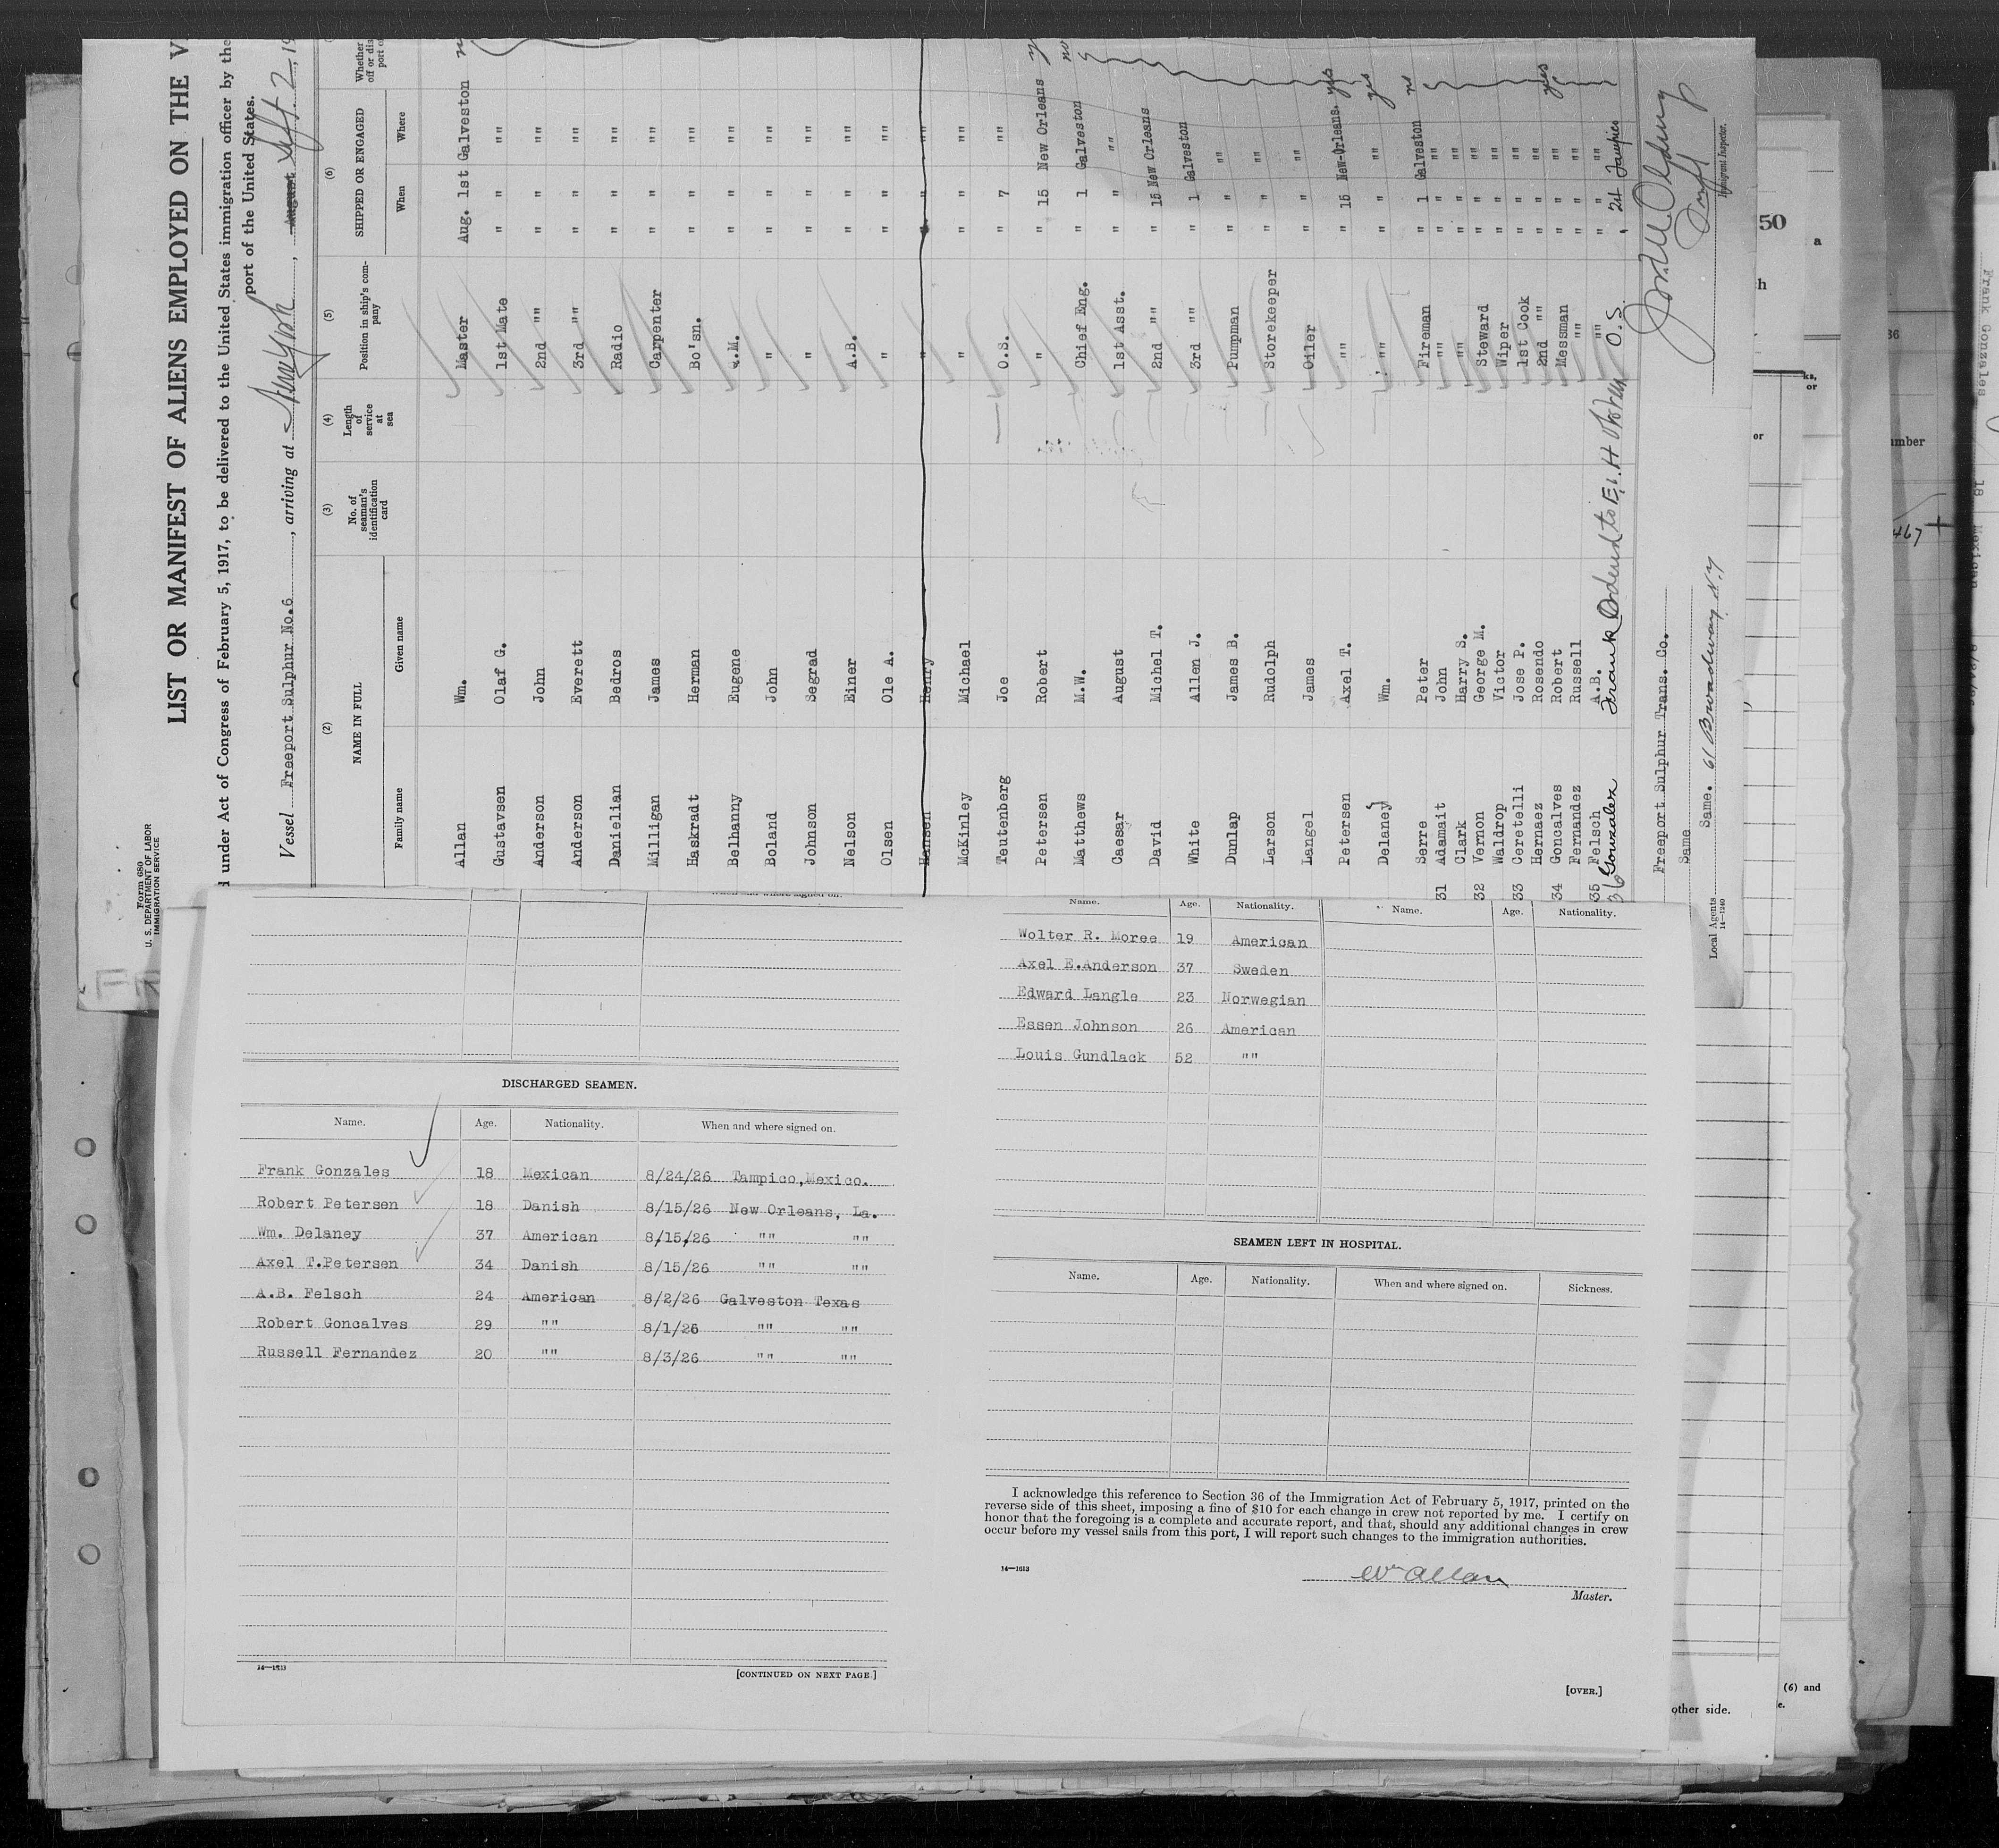 Form 689
U. S. DEPARTMENT OF LABOR
IMMIGRATION SERVICE
LIST OR MANIFEST OF ALIENS EMPLOYED ON THE V
under Act of Congress of February 5, 1917, to be delivered to the United States immigration officer by the
port of the United States.
Vessel Freeport Sulphur No.6, arriving at New York, August Sept. 2, 19
(2) (3) (4) (5) (6)
NAME IN FULL No. of seaman's identification card Length of service at sea Position in ship's company SHIPPED OR ENGAGED Whether
Family name Given name When Where
Allan Wm. Master Aug. 1st Galveston
Gustavsen Olaf G. 1st Mate " " ""
Anderson John 2nd "" " " ""
Anderson Everett 3rd "" " " ""
Danielian Bedros Radio " " ""
Milligan James Carpenter " " ""
Haskradt Herman Bo'sn. " " ""
Belhanny Eugene Q.M. " " ""
Boland John " " " ""
Johnson Segrad " " " ""
Nelson Einer A.B. " " ""
Olsen Ole A. " " " ""
Hansen Henry " " " ""
McKinley Michael " " " ""
Teutenberg Joe O.S. " 7 ""
Petersen Robert " " 15 New Orleans
Matthews M.W. Chief Eng. " 1 Galveston no
Caesar August 1st Asst. " " ""
David Michel T. 2nd "" " 15 New Orleans
White Allen J. 3rd "" " 1 Galveston
Dunlap James B. Pumpman " " ""
Larson Rudolph Storekeeper " " ""
Langel James Oiler " " ""
Petersen Axel T. "" " 15 New-Orleans. yes
Delaney Wm. "" " " "" yes
Serre Peter Fireman " 1 Galveston no
31 Adamait John "" " " ""
Clark Harry S. "" " " ""
32 Vernon George M. Steward " " ""
Waldrop Victor Wiper " " ""
33 Ceretelli Jose P. 1st Cook " " ""
Hernaez Rosendo 2nd "" " " ""
34 Goncalves Robert Messman " " "" yes
Fernandez Russell "" " " ""
35 Felsch A.B. "" " " ""
36 Gonzalez Frank O.S. " 24 Tampico
Freeport Sulphur Trans. Co.
Same
Local Agents Same. 61 Broadway N.Y
14—1240
Immigrant Inspector.
When and where signed on.
DISCHARGED SEAMEN.
Name. Age. Nationality. When and where signed on.
Frank Gonzales 18 Mexican 8/24/26 Tampico,Mexico.
Robert Petersen 18 Danish 8/15/26 New Orleans, La.
Wm. Delaney 37 American 8/15/26 "" ""
Axel T.Petersen 34 Danish 8/15/26 "" ""
A.B. Felsch 24 American 8/2/26 Galveston Texas
Robert Goncalves 29 "" 8/1/26 "" ""
Russell Fernandez 20 "" 8/3/26 "" ""
14—1613
[CONTINUED ON NEXT PAGE.]
Name. Age. Nationality. Name. Age. Nationality.
Wolter R. Moree 19 American
Axel E.Anderson 37 Sweden
Edward Langle 23 Norwegian
Essen Johnson 26 American
Louis Gundlack 52 ""
SEAMEN LEFT IN HOSPITAL.
Name. Age. Nationality. When and where signed on. Sickness.
I acknowledge this reference to Section 36 of the Immigration Act of February 5, 1917, printed on the
reverse side of this sheet, imposing a fine of $10 for each change in crew not reported by me. I certify on
honor that the foregoing is a complete and accurate report, and that, should any additional changes in crew
occur before my vessel sails from this port, I will report such changes to the immigration authorities.
14—1613
Wm Allan
Master.
[OVER.]
50
a
36
ks,
or
or
umber
467
(6) and
other side.
Frank Gonzales 18 Mexican